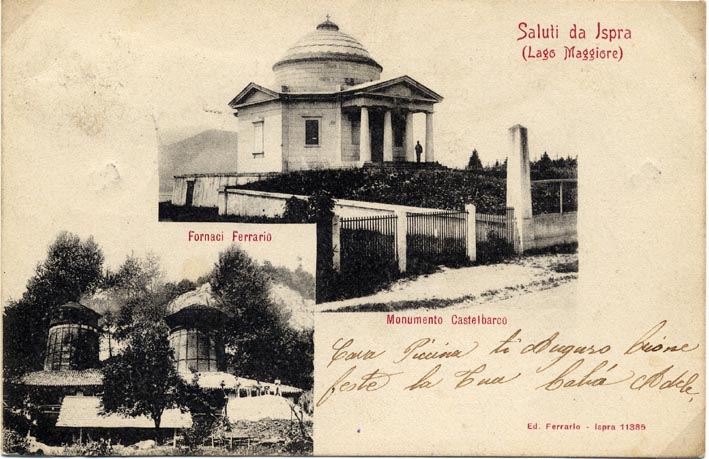 Saluti da Ispra
(Lago Maggiore)
Fornaci Ferrario
Monumento Castelbarco
Cara Piccina ti Auguro bione
feste la Tua Adele,
Ed. Ferrario - Ispra 11385